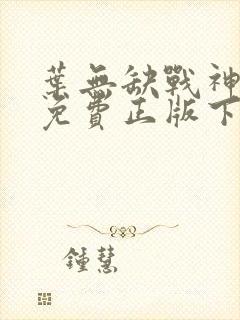 葉無缺戰神
免費正版下
鍾慧